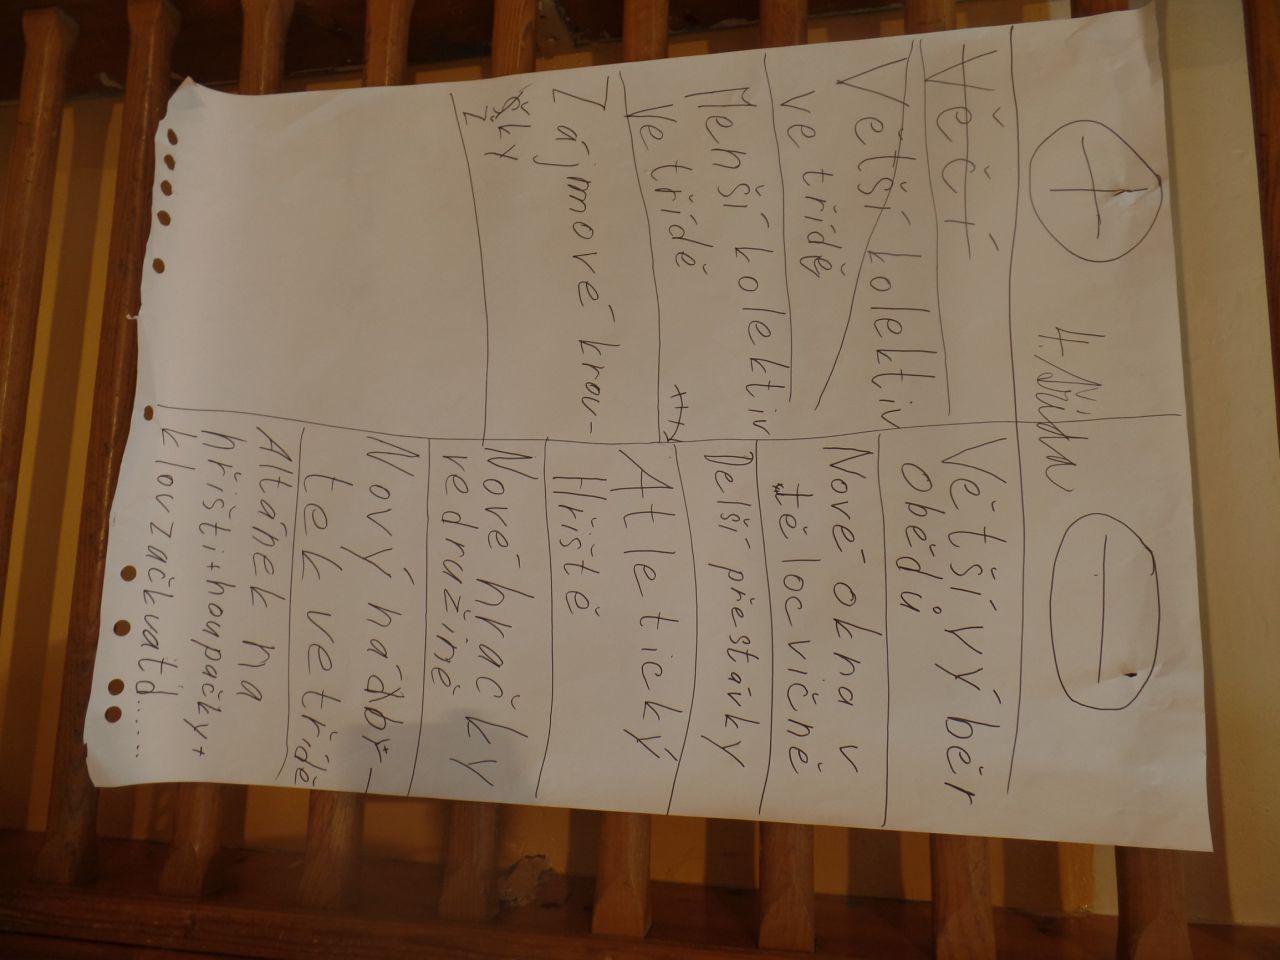 +
4. třída
−
Věčí
Větší kolektiv
ve třídě
Menší kolektiv
ve třídě
Zájmové krou-
žky
Větší výběr
obědů
Nové okna v
tělocvičně
Delší přestávky
Atletický
Hřiště
Nové hračky
ve družině
Nový náby-
tek ve třídě
Altánek na
hřišti+houpačky+
klouzačkyatd......